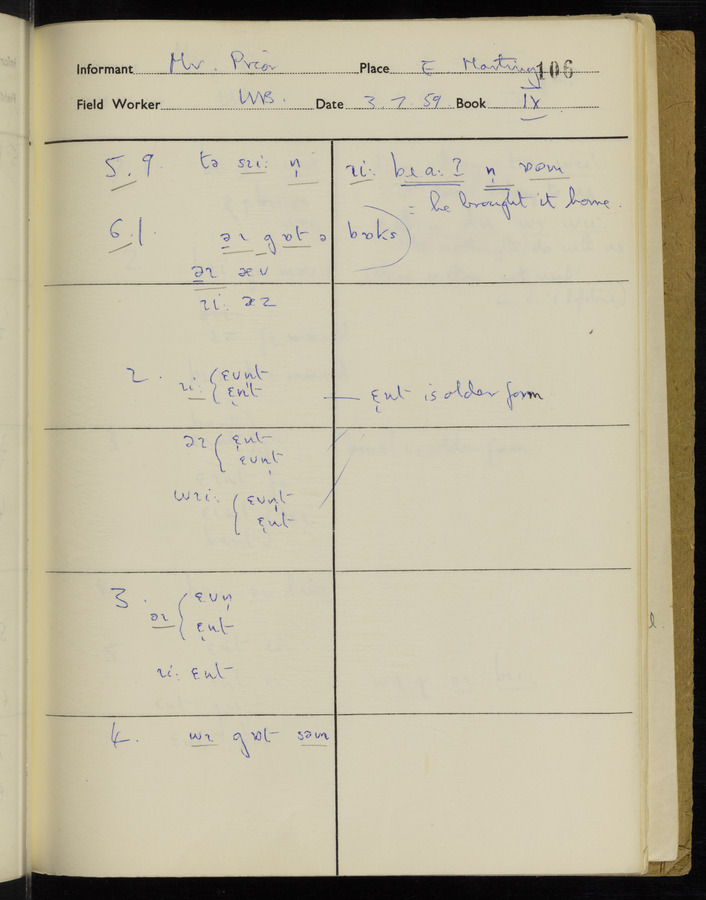 Informant Mr. Prior Place E Harting 106
Field Worker WB. Date 3.7.59 Book IX
5.9. tə sɪi: n̩ ɪi: bɪa:ʔ n̩
= he brought it home.
6.1. əɪ gɒt ə bʊks
əɪ æv
ɪi: æz
2. ɪi: ɛvnt
ɛnt — ɛnt is older form
əɪ ɛnt
ɛvnt
wɪi: ɛvnt
ɛnt
3. əɪ ɛvn̩
ɛnt
ɪi: ɛnt
4. wɪ gɒt səm